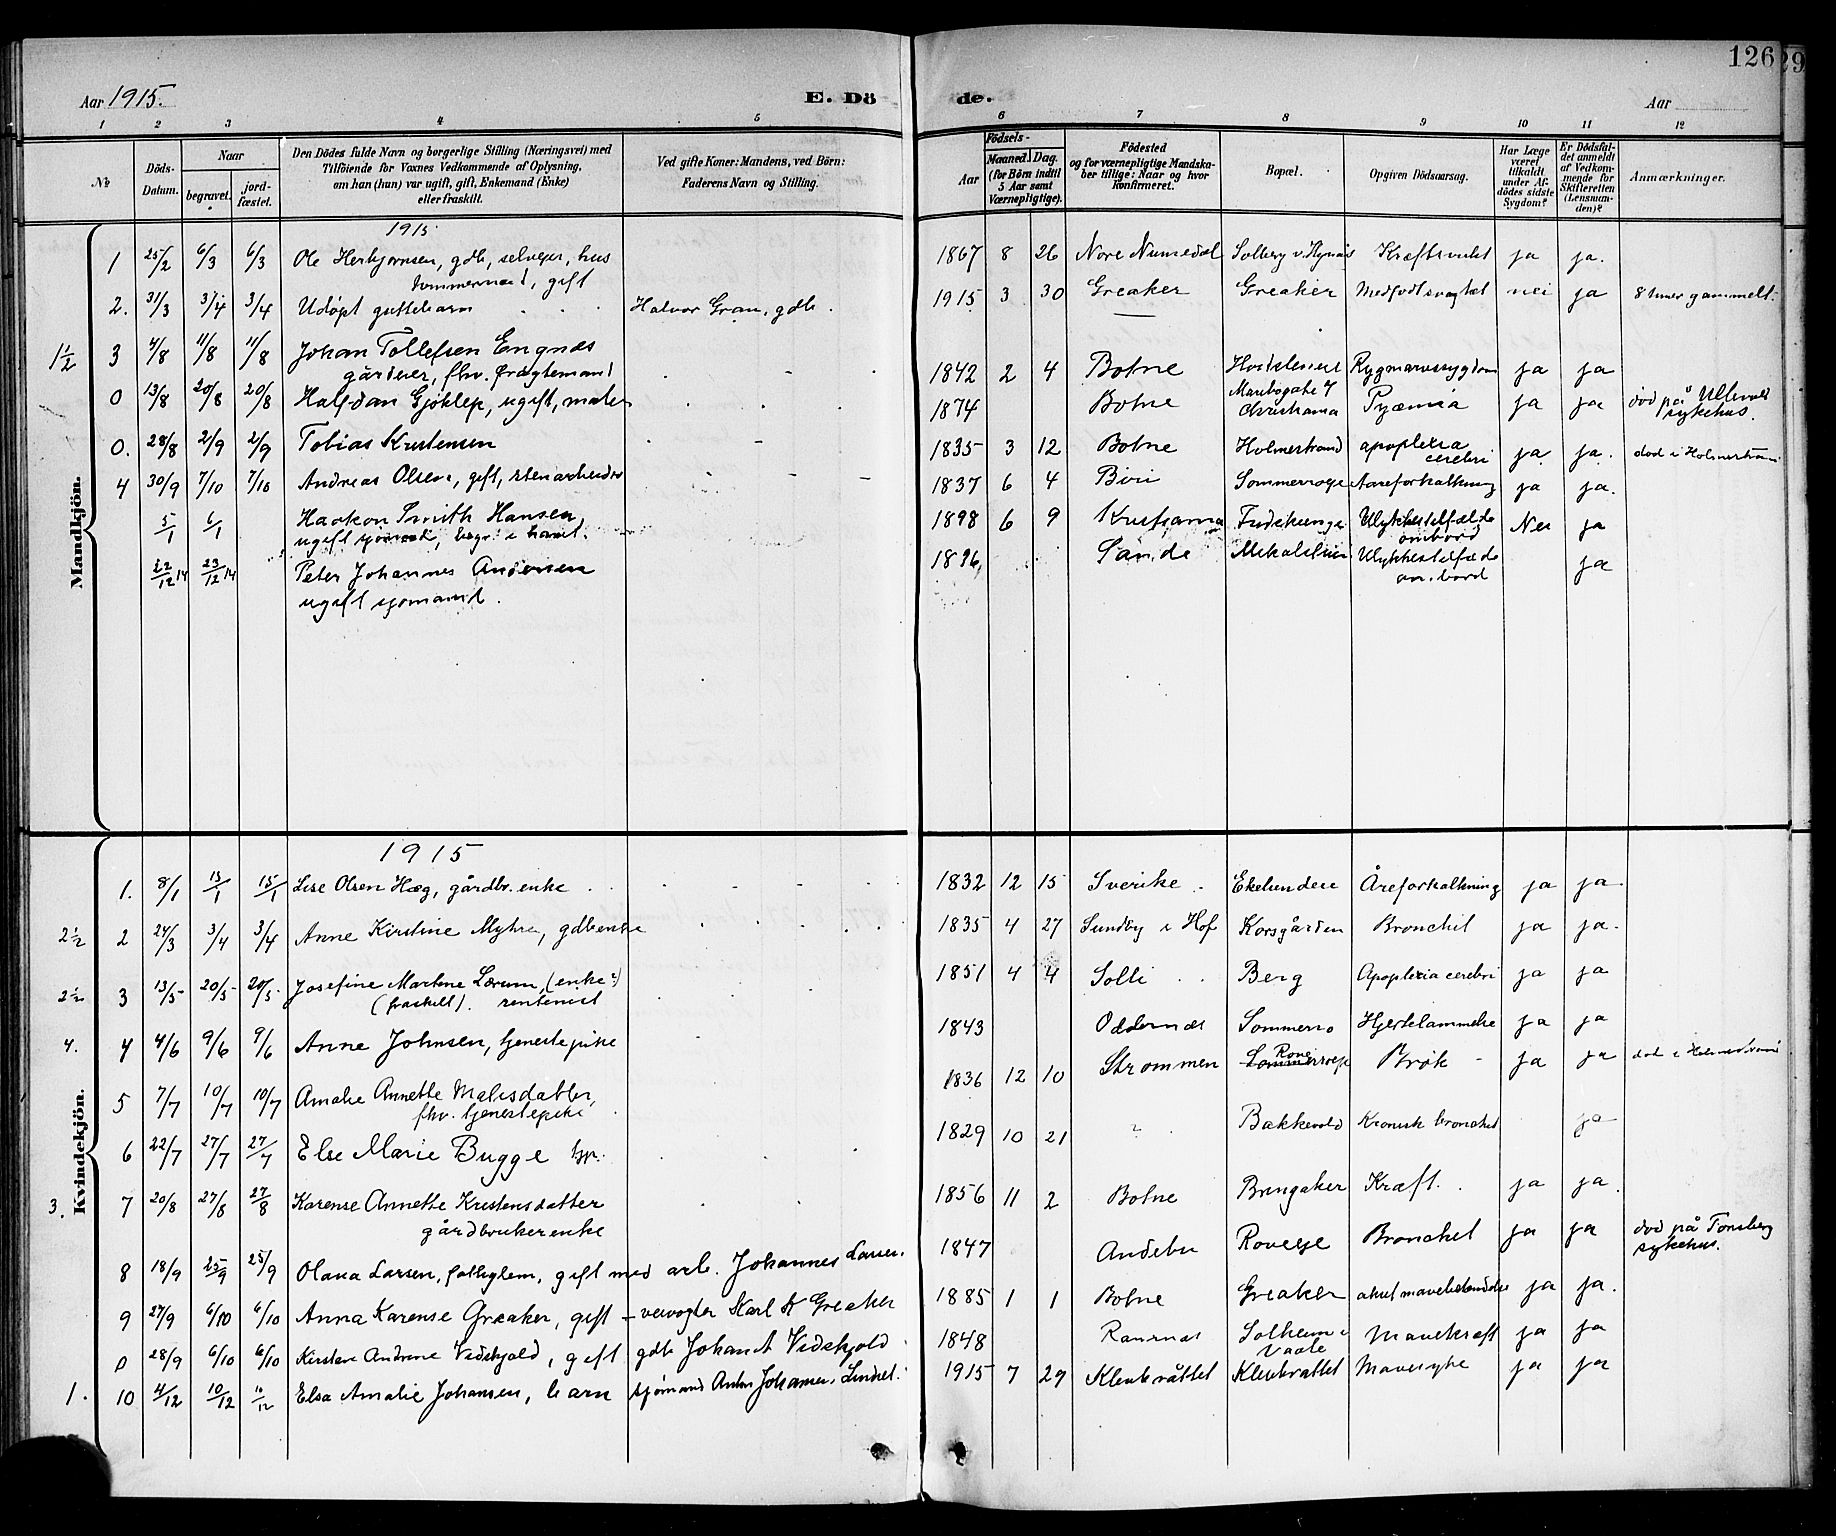 126
29
Aar 1915.
E. Dö
de.
Aar
1 2 3 4 5 6 7 8 9 10 11 12
No
Döds-Datum.
Naar
begravet.
jord-fæstet.
Den Dödes fulde Navn og borgerlige Stilling (Næringsvei) med
Tilföiende for Voxnes Vedkommende af Oplysning,
om han (hun) var ugift, gift, Enkemand (Enke)
eller fraskilt.
Ved gifte Koner: Mandens, ved Börn:
Faderens Navn og Stilling.
Födsels-
Aar
Maaned. Dag.
(for Börn indtil
5 Aar samt
Værnepligtige).
Födested
og for værnepligtige Mandska-
ber tillige: Naar og hvor
konfirmeret.
Bopæl.
Opgiven Dödsaarsag.
Har Læge
været
tilkaldt
under Af-
dödes sidste
Sygdom?
Er Dödsfal-
det anmeldt
af Vedkom-
mende for
Skifteretten
(Lensman-
den)?
Anmærkninger.
Mandkjön.
1915
1 25/2 6/3 6/3 Ole Herbjørnsen, gdb, selveier, hus
tømmermand, gift
1867 8 26 Nore Numedal Solberg v. Kræft ja ja.
2. 31/3 3/4 3/4 Udøpt guttebarn Halvor Gran, gdb. 1915 3 30 Greaker Greaker Medfødt svaghet nei ja 8 timer gammelt.
1½ 3 4/8 11/8 11/8 Johan Tollefsen Engnæs
gårdeier, fhv. fragtemand
1842 2 4 Botne Rygmarvssygdom ja ja
0 13/8 20/8 20/8 Halfdan Gjøklep, ugift, maler 1874 Botne Maribogate 7
Christiania Pyæmia ja ja død på Ullevold
sykehus.
0. 28/8 2/9 2/9 Tobias Kristensen 1835 3 12 Botne Holmestrand apoplexia
cerebri ja ja. død i Holmestrand
4 30/9 7/10 7/10 Andreas Olsen, gift, stenarbeider 1837 6 4 Biri Aareforkalkning ja ja.
5/1 6/1 Haakon Smith Hansen
ugift sjømand, begr. i havet.
1898 6 9 Ulykkestilfælde
ombord Nei ja
22/12 14 23/12 14 Peter Johannes Andersen
ugift sjømand.
1896, Sande Ulykkestilfælde
om bord ja
Kvindekjön.
1915
1. 8/1 15/1 15/1 Lise Olsen Hæg, gårdbr. enke 1832 12 15 Sverike Ekelundere Åreforkalkning ja ja
2½ 2 24/3 3/4 3/4 Anne Kirstine Myhre, gdbenke 1835 4 27 Sundby i Hof Korsgården Bronchit ja ja.
2½ 3 13/5 20/5 20/5 Josefine Martine Lærum, (enke?)
(fraskilt). rentenist
1851 4 4 Solli Berg Apoplexia cerebri ja ja
4. 4 4/6 9/6 9/6 Anne Johnsen, tjenestepike 1843 Oddernæs Sommerro Hjertelammelse ja ja
5 7/7 10/7 10/7 Amalie Annette Mathisdatter,
fhv. tjenestepike
1836 12 10 Strømmen Brok ja ja død i Holmestrand
6 22/7 27/7 27/7 Else Marie Bugge 1829 10 21 Bakkevold Kronisk bronchit ja
3. 7 20/8 27/8 27/8 Karense Annette Kristensdatter
gårdbrukerenke
1856 11 2 Botne Bringaker Kræft. ja ja
8 18/9 25/9 25/9 Olava Larsen, fattiglem, gift med arb. Johannes Larsen. 1847 Andebu Roveje Bronchit ja ja død på Tønsberg
sykehus.
9 27/9 6/10 6/10 Anna Karense Greaker, gift – veivogter Karl K Greaker 1885 1 1 Botne Greaker akut mavebetændelse ja ja.
0 28/9 6/10 6/10 Kirsten Andrine Vidskjold, gift gdb Johan A Vidskjold 1848 Ramnæs Solheim i
Vaale Mavekræft ja ja
1. 10 4/12 10/12 10/12 Elsa Amalie Johansen, barn sjømand Anton Johansen 1915 7 29 Klevbråttet Klevbråttet Mavesyke ja ja